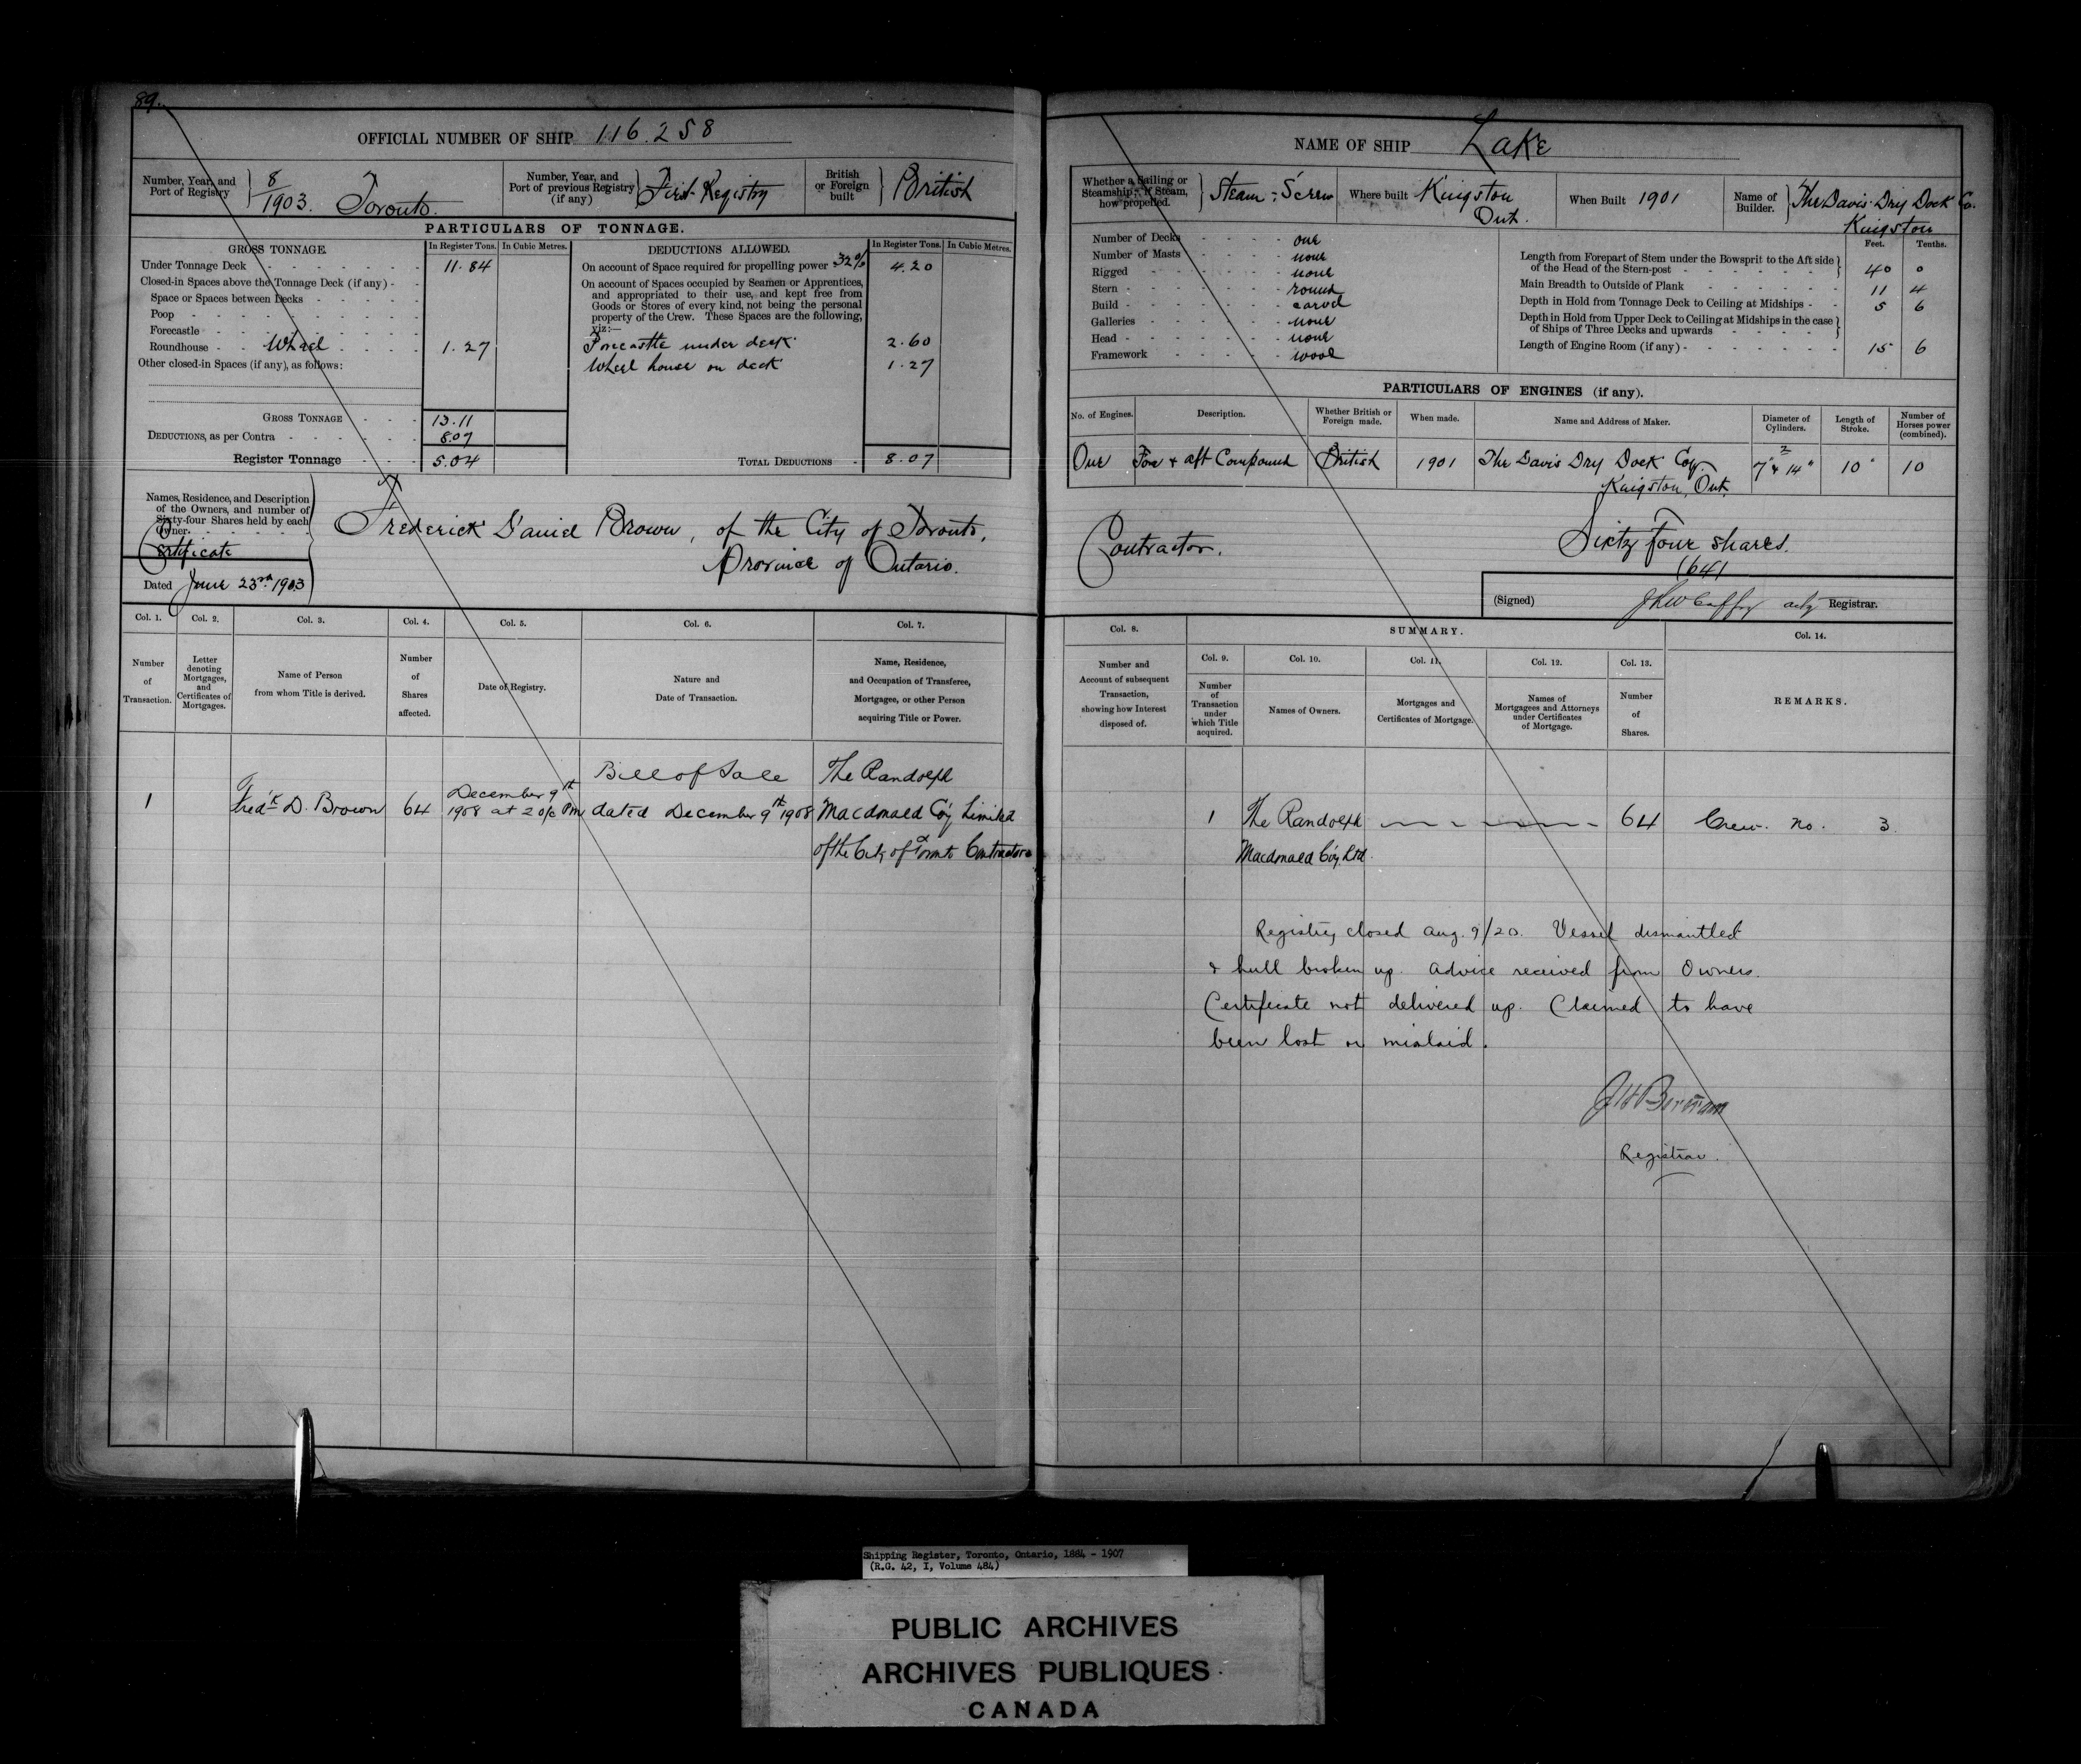 89.
OFFICIAL NUMBER OF SHIP 116.258
Number, Year, and Port of Registry 8/1903. Toronto.
Number, Year, and Port of previous Registry (if any) First Registry
British or Foreign built British
PARTICULARS OF TONNAGE.
GROSS TONNAGE. In Register Tons. In Cubic Metres.
Under Tonnage Deck 11.84
Closed-in Spaces above the Tonnage Deck (if any)
Space or Spaces between Decks
Poop
Forecastle
Roundhouse Wheel 1.27
Other closed-in Spaces (if any), as follows:
GROSS TONNAGE 13.11
DEDUCTIONS, as per Contra 8.07
Register Tonnage 5.04
DEDUCTIONS ALLOWED. In Register Tons. In Cubic Metres.
On account of Space required for propelling power 32% 4.20
On account of Spaces occupied by Seamen or Apprentices,
and appropriated to their use, and kept free from
Goods or Stores of every kind, not being the personal
property of the Crew. These Spaces are the following,
viz:—
Forecastle under deck 2.60
Wheel house on deck 1.27
TOTAL DEDUCTIONS 8.07
Names, Residence, and Description
of the Owners, and number of
Sixty-four Shares held by each
Owner.
Certificate
Dated June 23rd 1903
Frederick Daniel Brown, of the City of Toronto,
Province of Ontario.
Col. 1. Col. 2. Col. 3. Col. 4. Col. 5. Col. 6. Col. 7.
Number of Transaction.
Letter denoting Mortgages, and Certificates of Mortgages.
Name of Person from whom Title is derived.
Number of Shares affected.
Date of Registry.
Nature and Date of Transaction.
Name, Residence, and Occupation of Transferee, Mortgagee, or other Person acquiring Title or Power.
1
Fredk D. Brown
64
December 9th
1908 at 2 o/c Pm
Bill of Sale
dated December 9th 1908
The Randolph
Macdonald Coy Limited
of the City of Toronto Contractors
NAME OF SHIP Lake
Whether a Sailing or Steamship; if Steam, how propelled. Steam: Screw
Where built Kingston Ont.
When Built 1901
Name of Builder. The Davis Dry Dock Co. Kingston
Number of Decks one
Number of Masts none
Rigged none
Stern round
Build carvel
Galleries none
Head none
Framework wood
Feet. Tenths.
Length from Forepart of Stem under the Bowsprit to the Aft side
of the Head of the Stern-post 40 0
Main Breadth to Outside of Plank 11 4
Depth in Hold from Tonnage Deck to Ceiling at Midships 5 6
Depth in Hold from Upper Deck to Ceiling at Midships in the case
of Ships of Three Decks and upwards
Length of Engine Room (if any) 15 6
PARTICULARS OF ENGINES (if any).
No. of Engines. Description. Whether British or Foreign made. When made. Name and Address of Maker. Diameter of Cylinders. Length of Stroke. Number of Horses power (combined).
One Fore & aft Compound British 1901 The Davis Dry Dock Coy. Kingston, Ont. 2 7" & 14" 10" 10
Contractor.
Sixty Four shares.
(64)
(Signed) acty Registrar.
Col. 8. SUMMARY. Col. 14.
Col. 9. Col. 10. Col. 11. Col. 12. Col. 13.
Number and Account of subsequent Transaction, showing how Interest disposed of.
Number of Transaction under which Title acquired.
Names of Owners.
Mortgages and Certificates of Mortgage.
Names of Mortgagees and Attorneys under Certificates of Mortgage.
Number of Shares.
REMARKS.
1 The Randolph 64 Crew. No. 3
Macdonald Coy. Ltd.
Registry closed Aug. 9/20. Vessel dismantled
& hull broken up. Advice received from Owners.
Certificate not delivered up. Claimed to have
been lost or mislaid.
JH Bertram
Registrar.
Shipping Register, Toronto, Ontario, 1884 - 1907
(R.G. 42, I, Volume 484)
PUBLIC ARCHIVES
ARCHIVES PUBLIQUES
CANADA